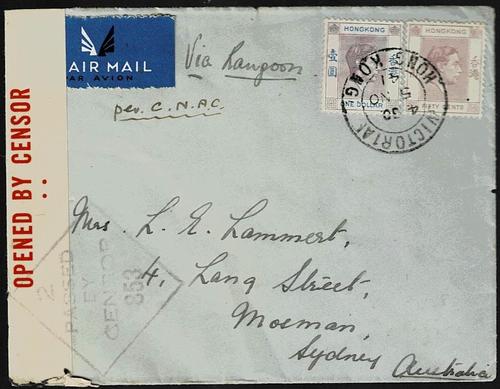 AIR MAIL
PAR AVION
Via Rangoon
per. C.N.A.C.
HONGKONG
壹圓
ONE DOLLAR
HONGKONG
香港
FIFTY CENTS
VICTORIA
HONG KONG
4.30
5 NO
41
OPENED BY CENSOR
2
PASSED
BY
CENSOR
853
Mrs. L. E. Lammert,
4, Lang Street,
Mosman,
Sydney
Australia